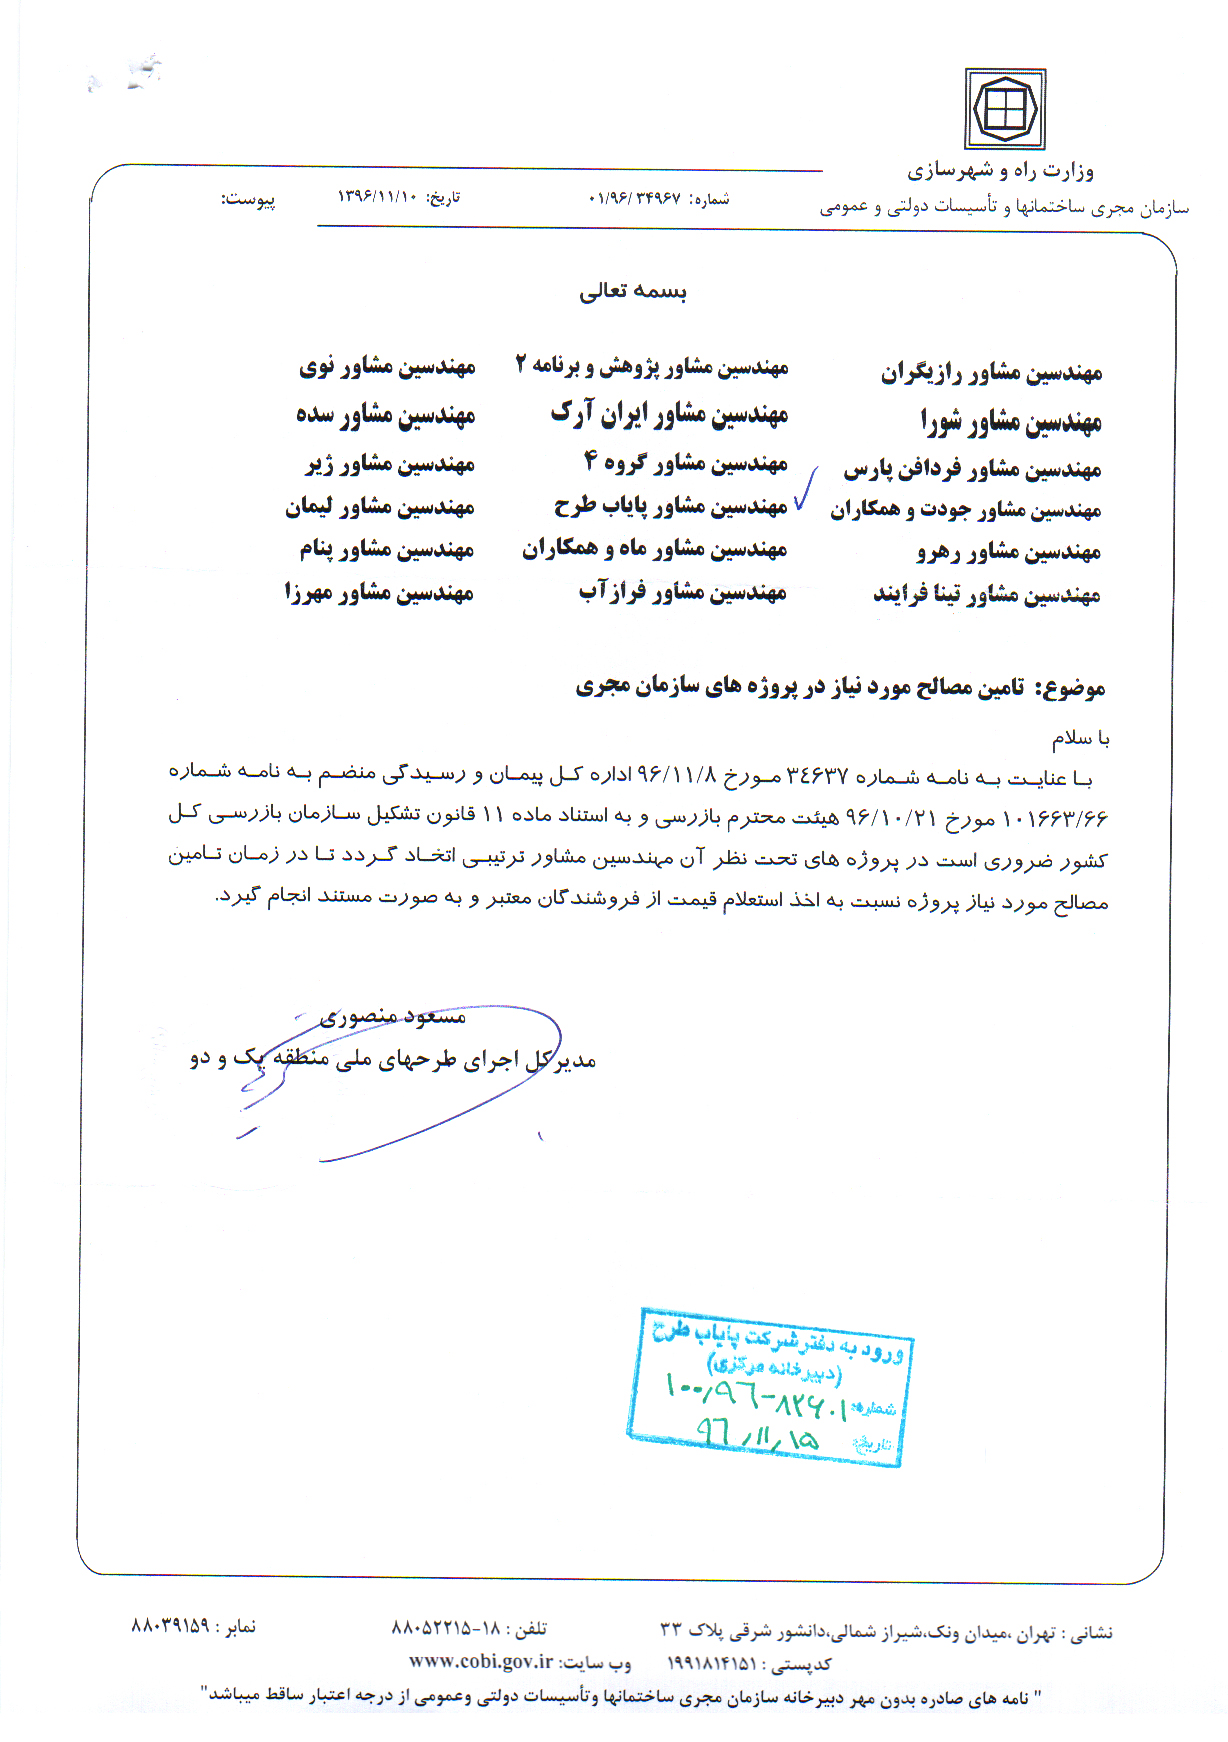 وزارت راه و شهرسازی
سازمان مجری ساختمانها و تأسیسات دولتی و عمومی
شماره: ۰۱/۹۶/۳۴۹۶۷
تاریخ: ۱۳۹۶/۱۱/۱۰
پیوست:
بسمه تعالی
مهندسین مشاور رازیگران مهندسین مشاور پژوهش و برنامه ۲ مهندسین مشاور نوی
مهندسین مشاور شورا مهندسین مشاور ایران آرک مهندسین مشاور سده
مهندسین مشاور فردافن پارس مهندسین مشاور گروه ۴ مهندسین مشاور ژیر
مهندسین مشاور جودت و همکاران مهندسین مشاور پایاب طرح مهندسین مشاور لیمان
مهندسین مشاور رهرو مهندسین مشاور ماه و همکاران مهندسین مشاور پنام
مهندسین مشاور تینا فرایند مهندسین مشاور فرازآب مهندسین مشاور مهرزا
موضوع: تامین مصالح مورد نیاز در پروژه های سازمان مجری
با سلام
با عنایت به نامه شماره ۳۴۶۳۷ مورخ ۹۶/۱۱/۸ اداره کل پیمان و رسیدگی منضم به نامه شماره
۱۰۱۶۶۳/۶۶ مورخ ۹۶/۱۰/۲۱ هیئت محترم بازرسی و به استناد ماده ۱۱ قانون تشکیل سازمان بازرسی کل
کشور ضروری است در پروژه های تحت نظر آن مهندسین مشاور ترتیبی اتخاد گردد تا در زمان تامین
مصالح مورد نیاز پروژه نسبت به اخذ استعلام قیمت از فروشندگان معتبر و به صورت مستند انجام گیرد.
مسعود منصوری
مدیرکل اجرای طرحهای ملی منطقه یک و دو
ورود به دفتر شرکت پایاب طرح
(دبیرخانه مرکزی)
شماره: ۱۰۰/۹۶-۸۲۶۰۱
تاریخ: ۹۶/۱۱/۱۵
نشانی : تهران ،میدان ونک،شیراز شمالی،دانشور شرقی پلاک ۳۳ تلفن : ۱۸-۸۸۰۵۲۲۱۵ نمابر : ۸۸۰۳۹۱۵۹
کدپستی : ۱۹۹۱۸۱۴۱۵۱ وب سایت: www.cobi.gov.ir
" نامه های صادره بدون مهر دبیرخانه سازمان مجری ساختمانها وتأسیسات دولتی وعمومی از درجه اعتبار ساقط میباشد"